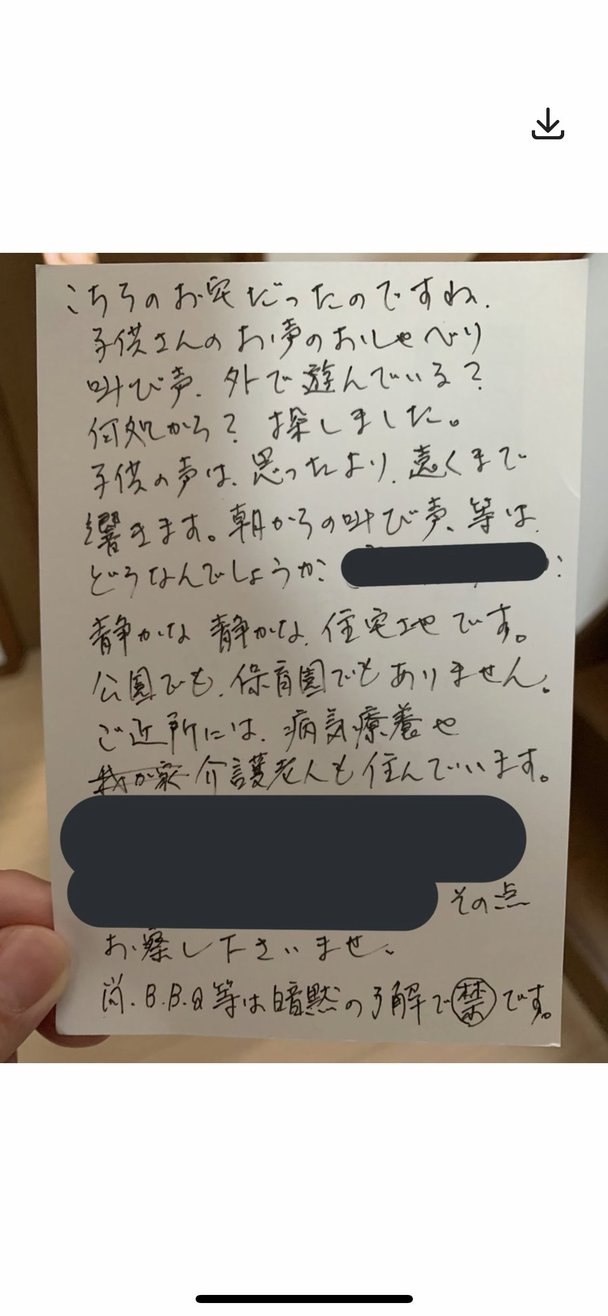 こちらのお宅だったのですね、
子供さんのお声のおしゃべり
叫び声、外で遊んでいる？
何処から？ 探しました。
子供の声は、思ったより、遠くまで
響きます。朝からの叫び声、等は、
どうなんでしょうか?
静かな 静かな、住宅地です。
公園でも、保育園でもありません。
ご近所には、病気療養や
我が家 介護老人も住んでいます。
その点
お察し下さいませ、
尚、B.B.Q等は暗黙の了解で禁です。